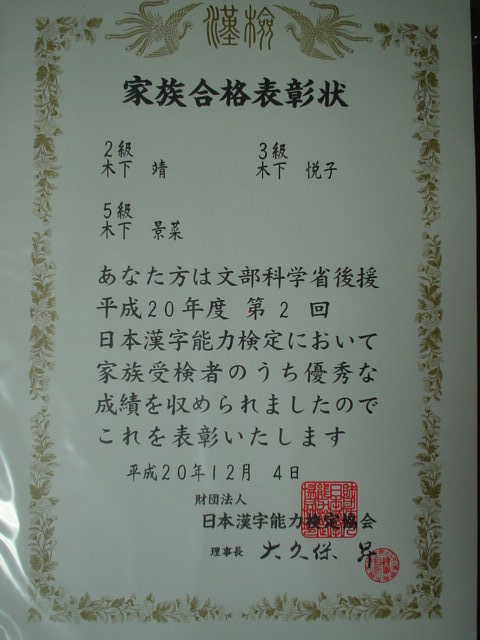 漢検
家族合格表彰状
2級
木下 靖
3級
木下 悦子
5級
木下 景菜
あなた方は文部科学省後援
平成20年度 第2回
日本漢字能力検定において
家族受検者のうち優秀な
成績を収められましたので
これを表彰いたします
平成20年12月 4日
財団法人
日本漢字能力検定協会
理事長 大久保 昇